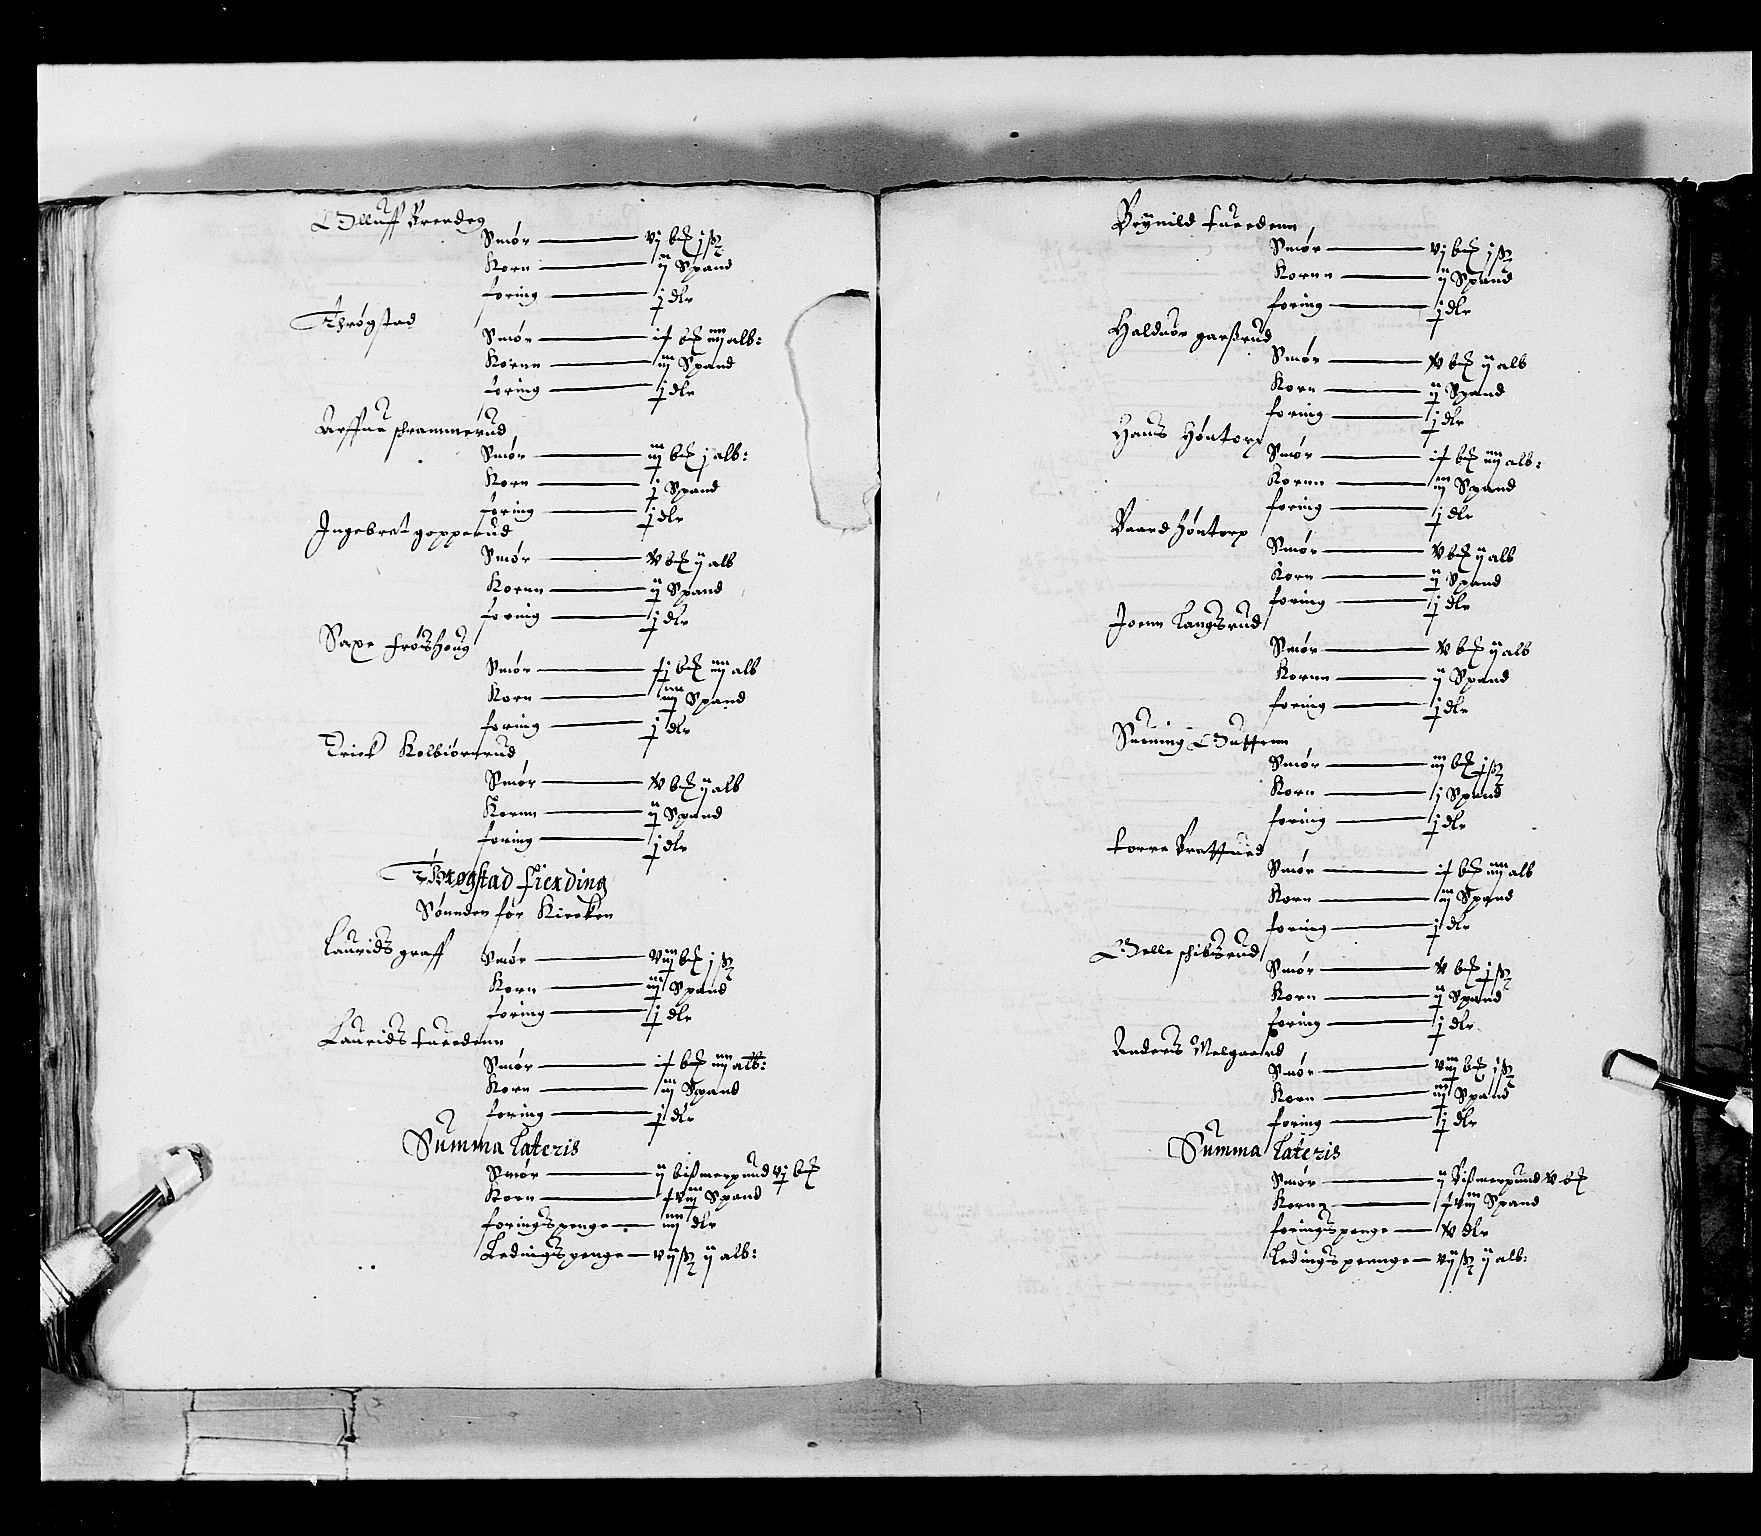 Olluff
Smør — vj b℔ j ß
Korn — ij Spand
foring — j dlr
Thrøgstad
Smør — ix b℔ iiij alb:
Kornn — iij Spand
foring — j dlr
Arffue schrammerud
Smør — iij b℔ j alb:
Korn — j Spand
foring — j dlr
Ingebret gopperud
Smør — v b℔ ij alb
Kornn — ij Spand
foring — j dlr
Saxe frøishoug
Smør — xj b℔ iiij alb
Korn — iiij Spand
foring — j dlr
Erick Kolbiørnrud
Smør — v b℔ ij alb
Kornn — ij Spand
foring — j dlr
Thrøgstad fierding
Sønnden for Kircken
Laurids graff
Smør — viij b℔ j ß
Korn — iij Spand
foring — j dlr
Laurids tueedenn
Smør — ix b℔ iiij alb:
Korn — iij Spand
foring — j dlr
Summa Lateris
Smør — ij bißmerpund vj b℔
Korn — xviij Spand
foringspenge — iiij dlr
Ledingspenge — vij ß ij alb:
Brynild tueedenn
Smør — vj b℔ j ß
Kornn — ij Spand
foring — j dlr
Halduor garßrud
Smør — v b℔ ij alb
Korn — ij Spand
foring — j dlr
Hans Høntorp
Smør — ix b℔ iiij alb:
Kornn — iij Spand
foring — j dlr
Baard Høntorp
Smør — v b℔ ij alb
Korn — ij Spand
foring — j dlr
Joenn Langsrud
Smør — v b℔ ij alb
Kornn — ij Spand
foring — j dlr
Suening
Smør — iij b℔ j ß
Korn — j Spand
foring — j dlr
torre
Smør — ix b℔ iiij alb
Korn — iij Spand
foring — j dlr
Smør — v b℔ j ß
Korn — ij Spand
foring — j dlr
Anders Melgaard
Smør — viij b℔ j ß
Korn — iij Spand
foring — j dlr
Summa Lateris
Smør — ij Bißmerpund v b℔
Kornn — xviij Spand
foringspenge — v dlr
Ledingspennge — vij ß ij alb: